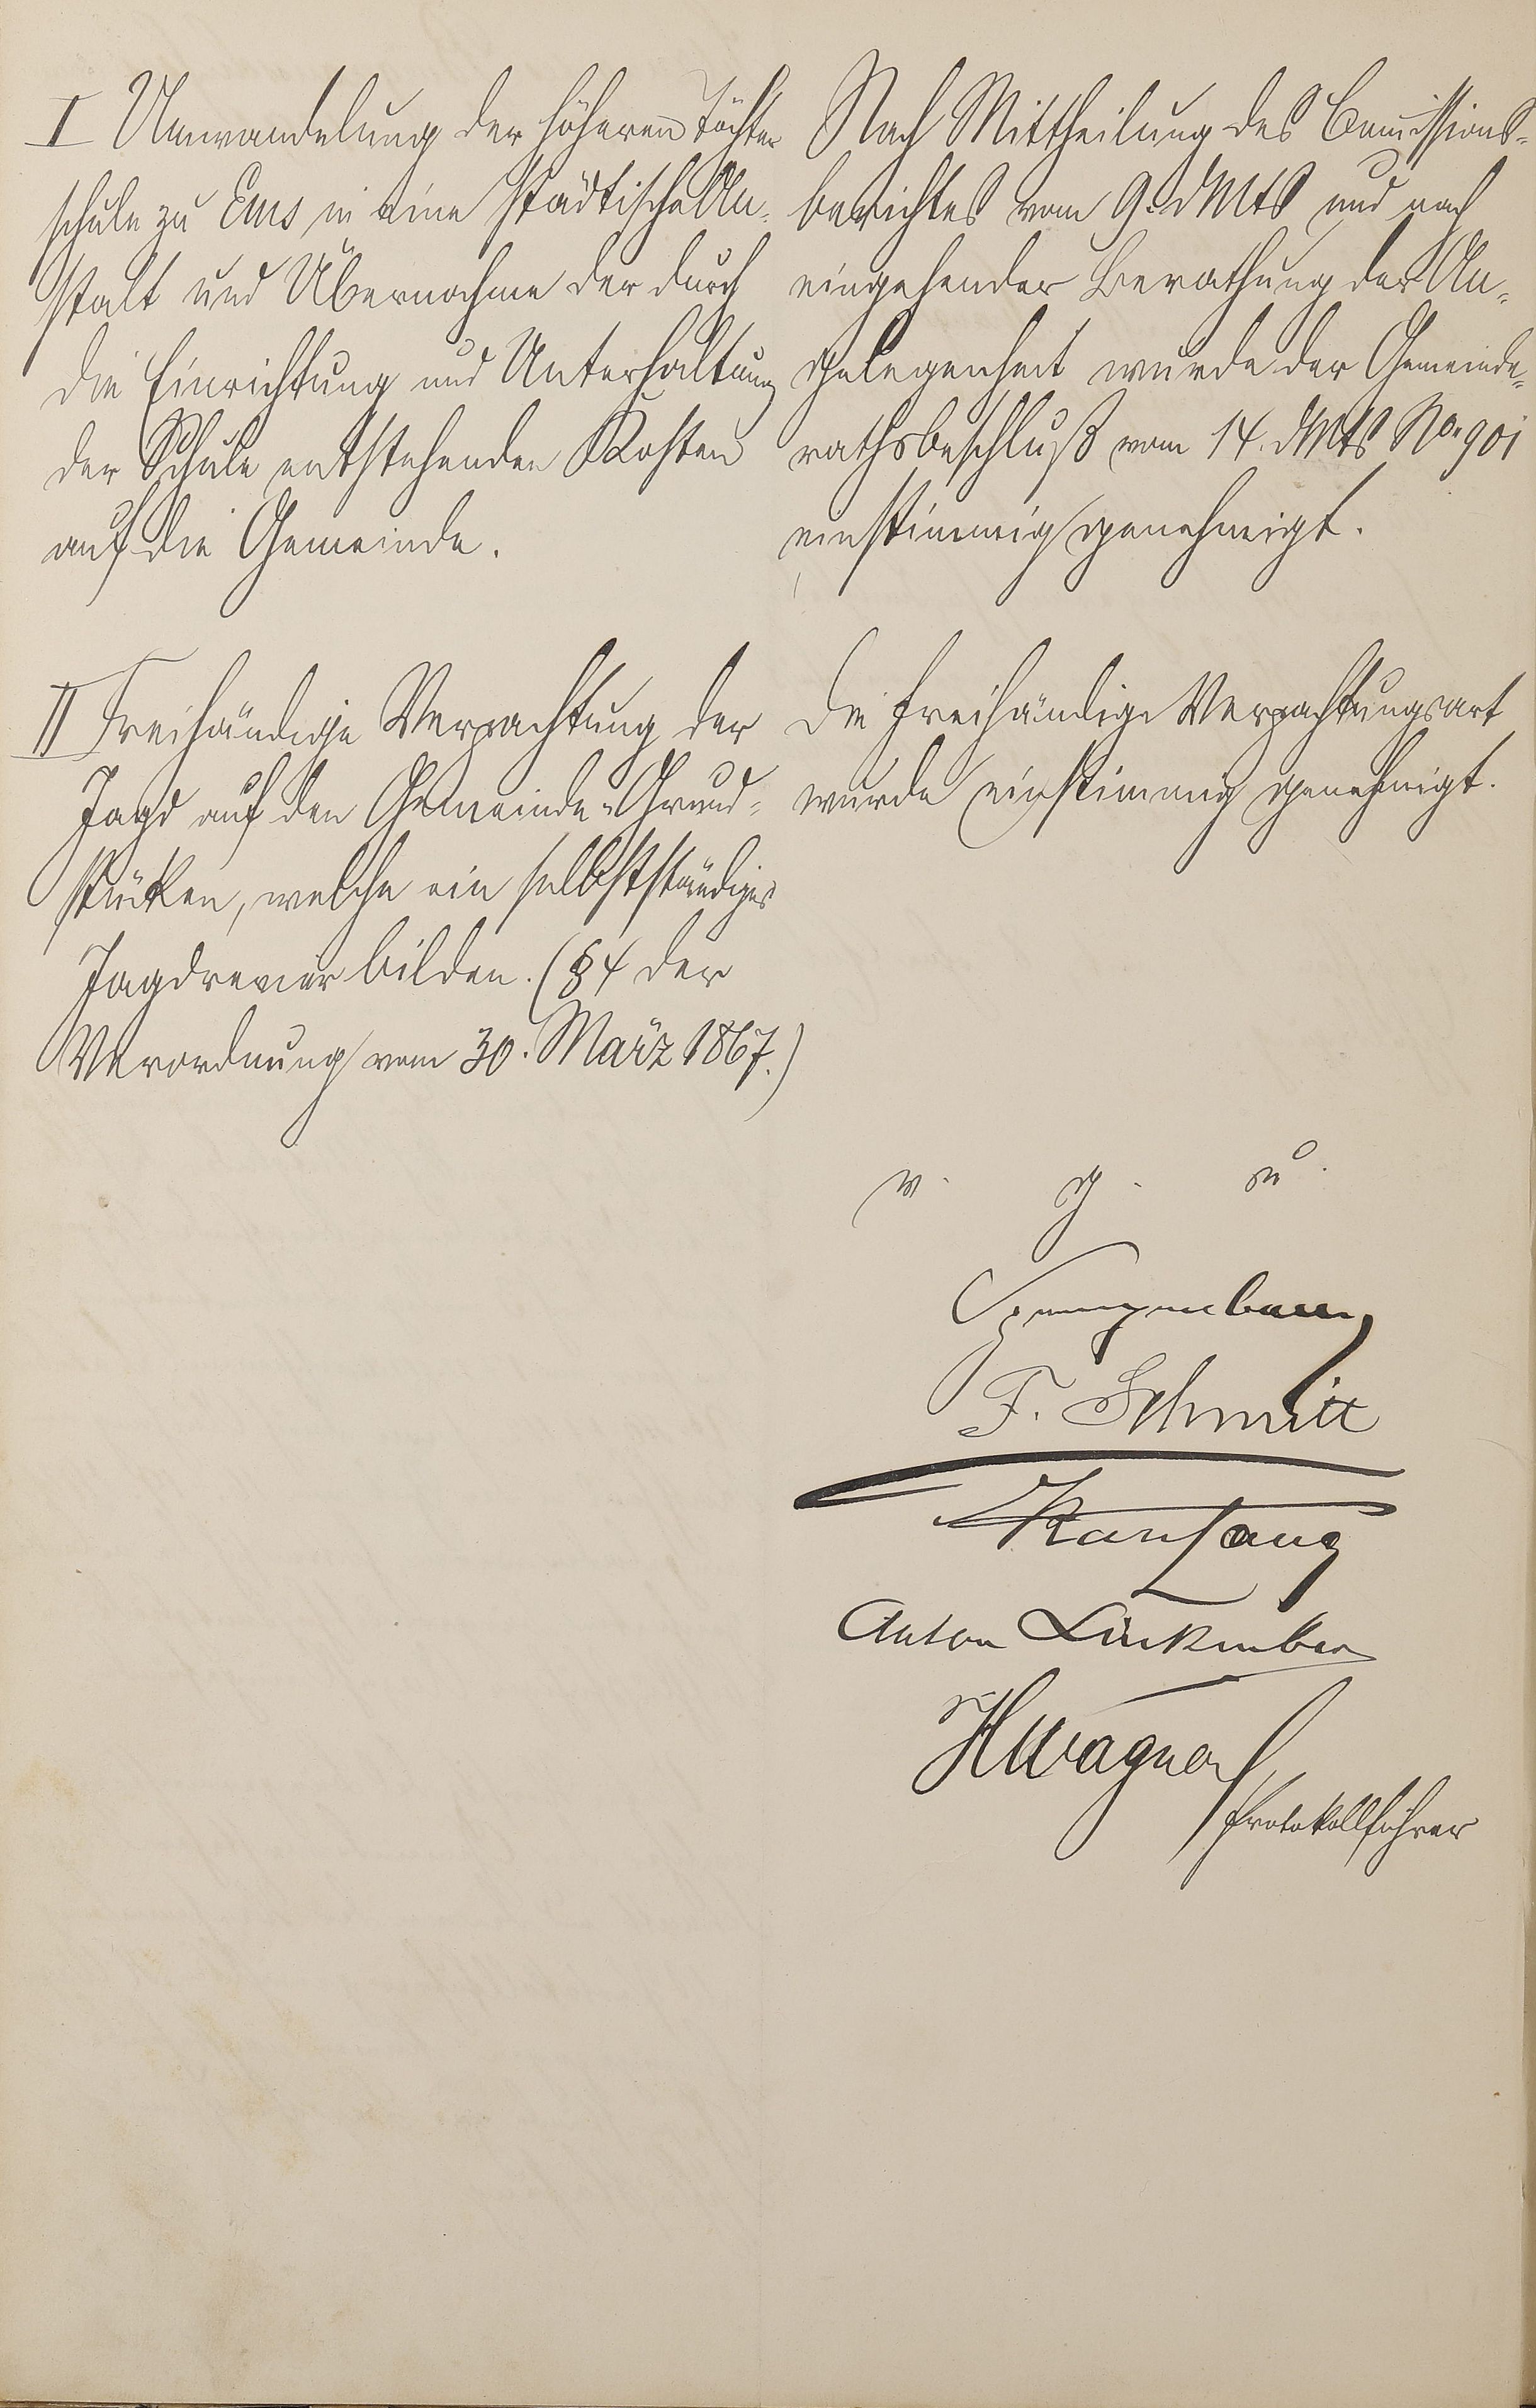 I Umwandelung der höheren Töchter
schule zu Ems in eine städtische An-
stalt und Übernahme der durch
die Einrichtung und Unterhaltung
der Schule entstehenden Kosten
auf die Gemeinde.
Nach Mittheilung des Comissions-
berichtes vom 9. dMts und nach
eingehender Berathung der An-
gelegenheit wurde der Gemeinde-
rathsbeschluß vom 14. dMts No. 901
einstimmig genehmigt.
II Freihändige Verpachtung der
Jagd auf den Gemeinde-Grund-
stücken, welche ein selbstständiges
Jagdrevier bilden. (§ 4 der
Verordnung vom 30. März 1867.)
Die freihändige Verpachtungsart
wurde einstimmig genehmigt.
v. g. u.
F. Schmitt
Karl Lang
Anton Linkenbach
H Wagner
Protokollführer